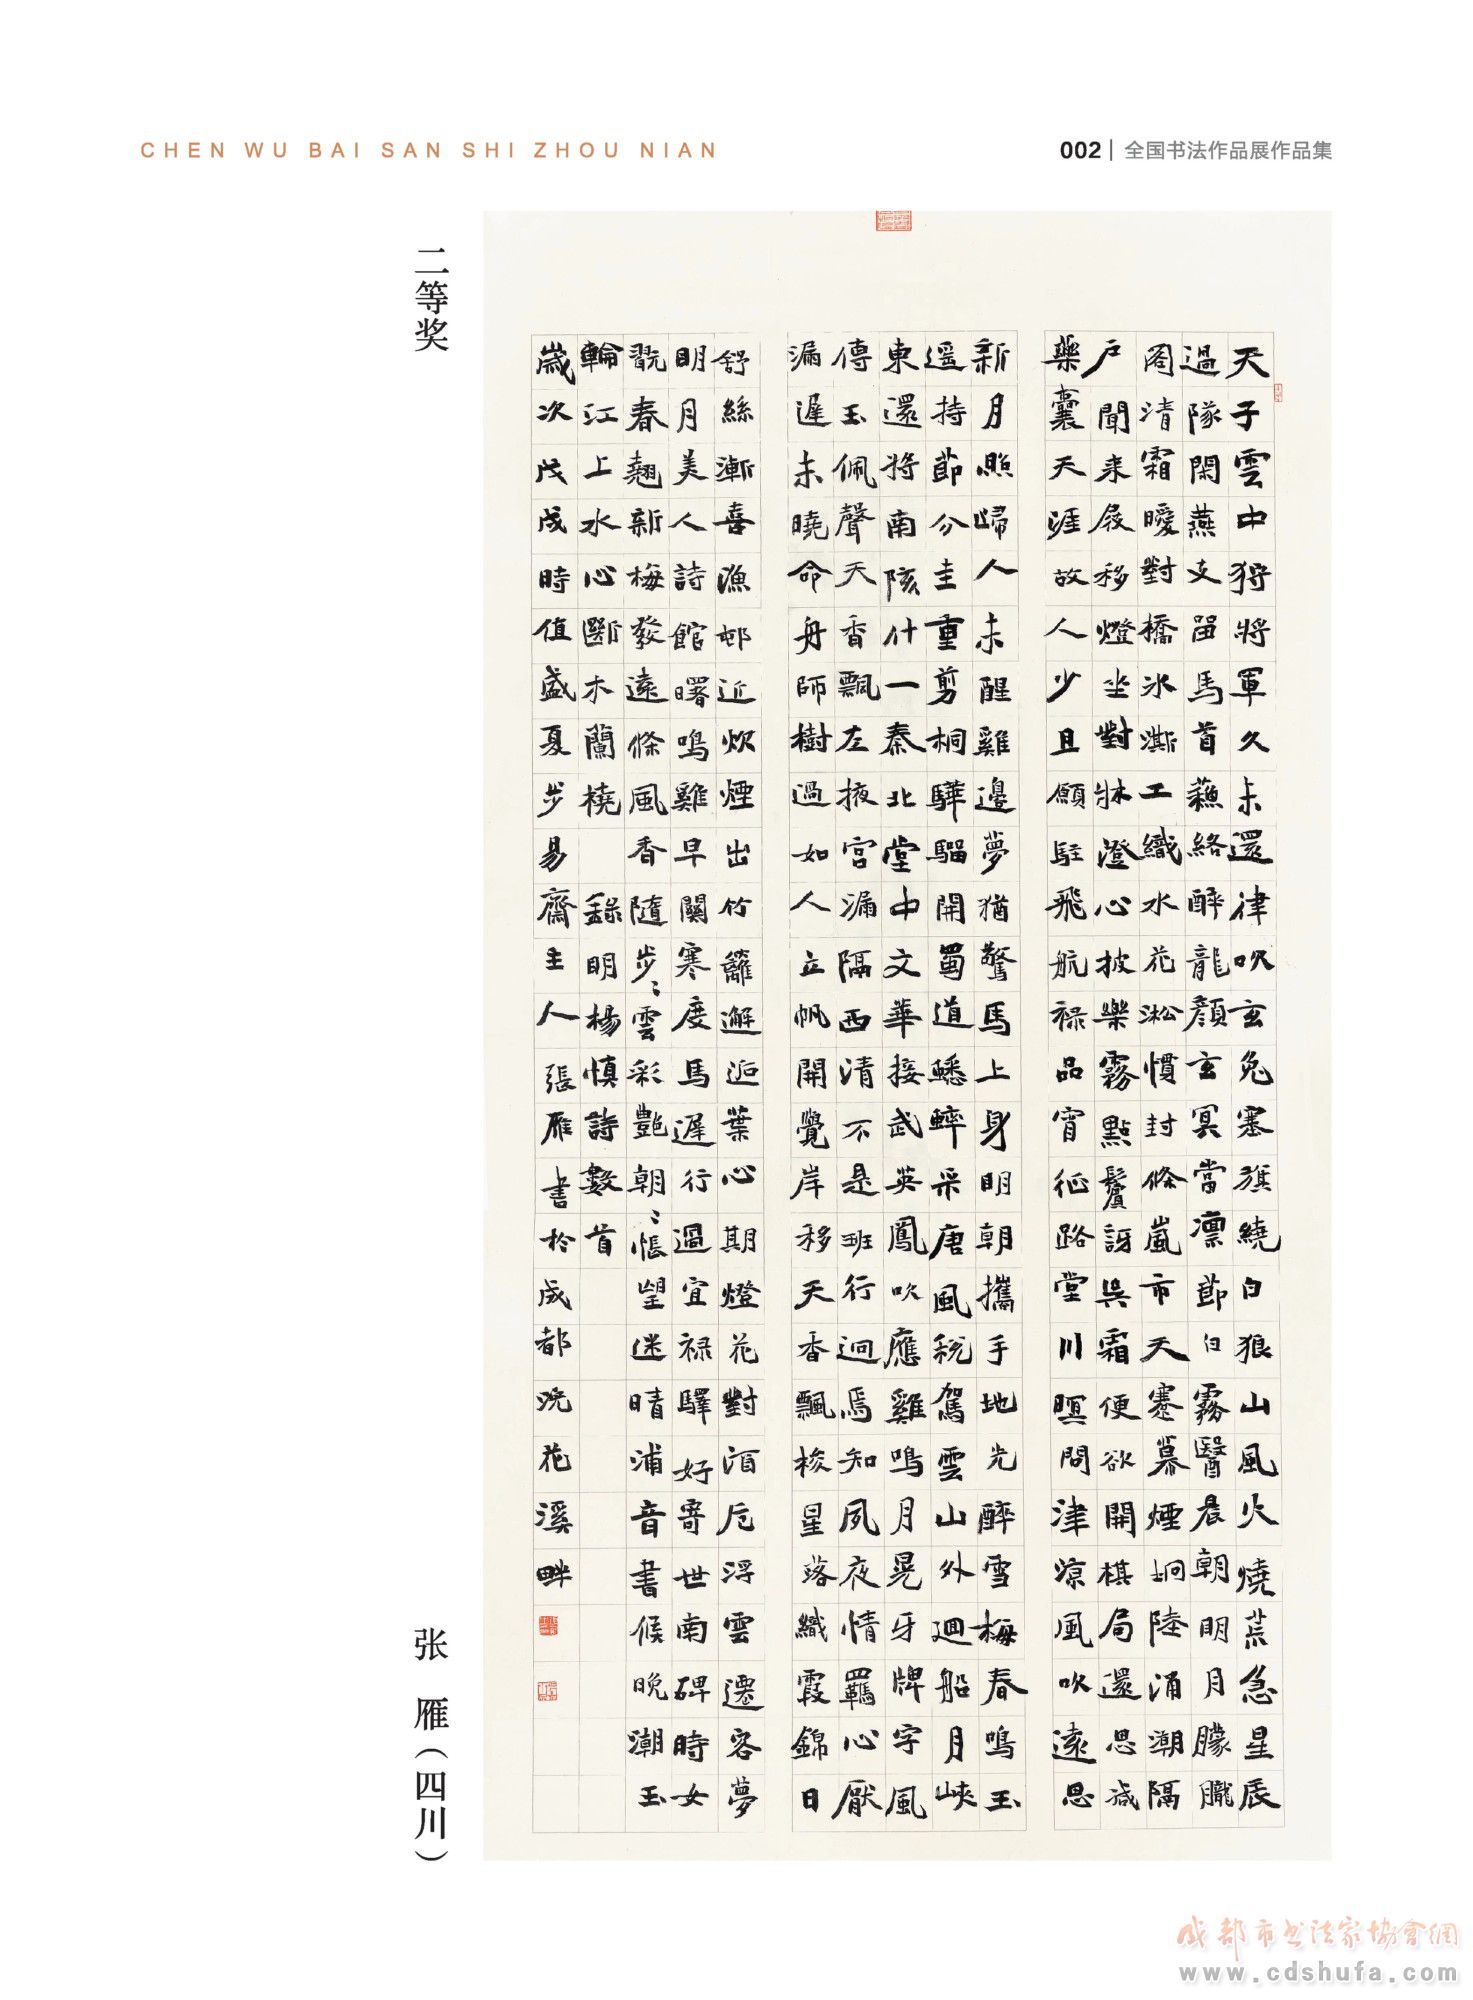 CHEN WU BAI SAN SHI ZHOU NIAN
002 | 全国书法作品展作品集
二等奖
张 雁（四川）
天子雲中狩將軍久未還律吹玄兔塞旗繞白狼山風火燒荒急星辰
過隊閑燕支留馬首蘓絡醉龍顔玄冥當凛節白霧翳晨朝明月朦朧
閣清霜曖對橋冰澌工織水花淞慣封條嵐市天蹇幕煙坰陸涌潮隔
户聞来屐移燈坐對牀澄心披樂霧點鬢訝吳霜便欲開棋局還思減
藥囊天涯故人少且願駐飛航禄品宵征路堂川暝問津凉風吹遠思
新月照歸人未醒雞邊夢猶驚馬上身明朝攜手地先醉雪梅春鳴玉
遥持節分圭重剪桐驊騮開蜀道蟋蟀采唐風税駕雲山外迴船月峽
東還將南陔什一奏北堂中文華接武英鳳吹應雞鳴月晃牙牌字風
傳玉佩聲天香飄左掖宫漏隔西清不是班行迥焉知夙夜情羈心厭
漏遲未曉命舟師樹過如人立帆開覺岸移天香飄桉星落織霞錦日
舒絲漸喜漁邨近炊煙出竹籬邂逅葉心期燈花對酒卮浮雲遷客夢
明月美人詩館曙鳴雞早關寒度馬遲行過宜禄驛好寄世南碑時女
翫春翹新梅發遠條風香隨步〻雲彩艷朝〻悵望迷晴浦音書候晚潮玉
輪江上水心斷木蘭橈 錄明楊慎詩數首
歲次戊戌時值盛夏步易齋主人張雁書於成都浣花溪畔
成都市书法家協會網
www.cdshufa.com